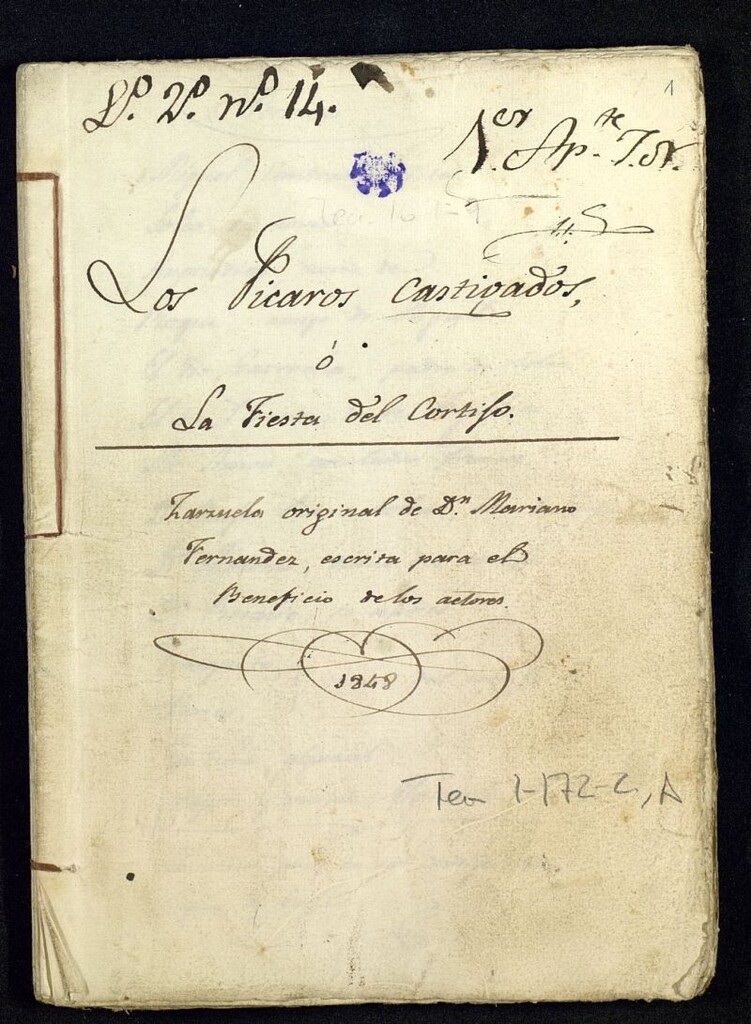 Lº. 2º. nº. 14.
1
1.er Ap.te
Tea 1-
Los Picaros Castigados,
ó
La Fiesta del Cortijo.
Zarzuela original de Dn. Mariano
Fernandez, escrita para el
Beneficio de los actores.
1848
Tea 1-172-2, A